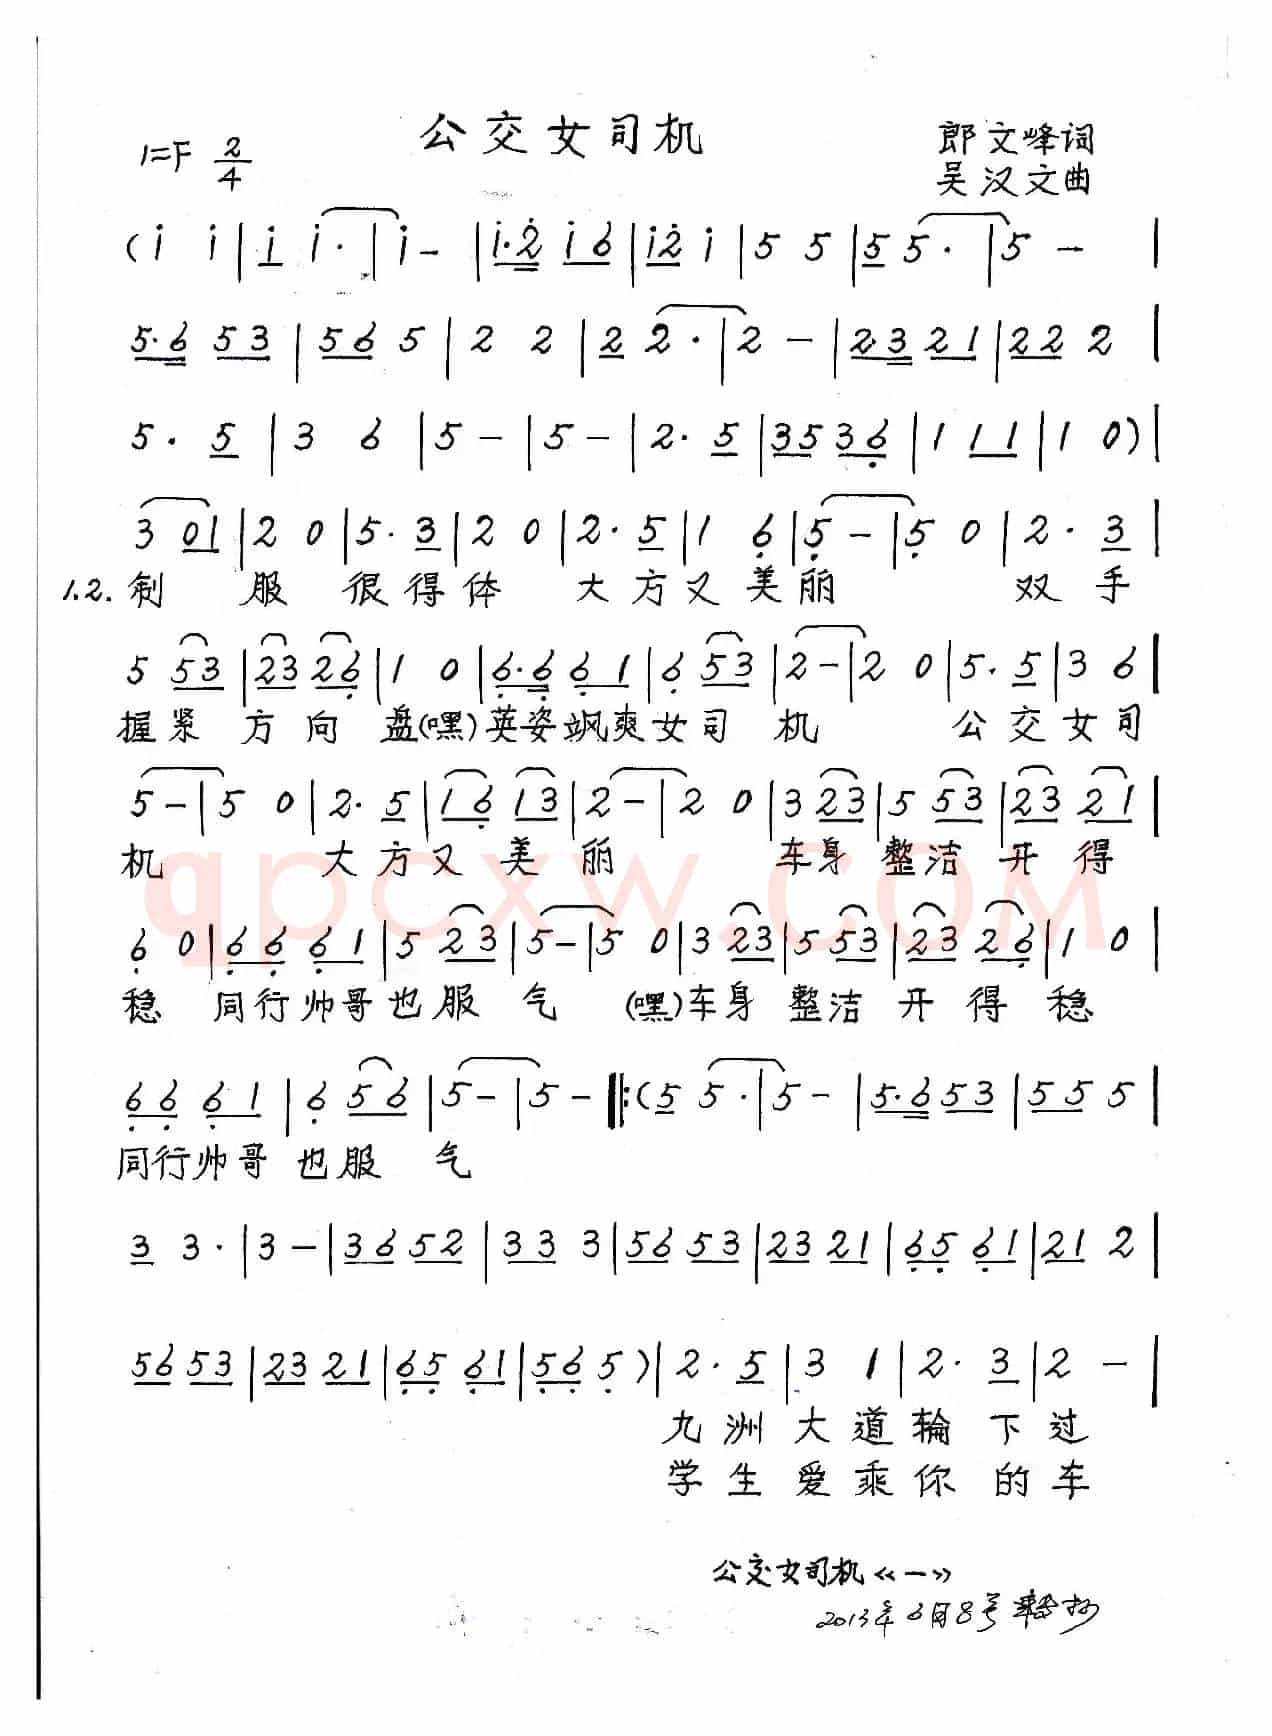 公交女司机
1=F 2/4
郎文峰词
吴汉文曲
(i i | i i· | i - | i·2 i6 | i2 i | 5 5 | 5 5· | 5 - |
5·6 53 | 56 5 | 2 2 | 2 2· | 2 - | 23 21 | 22 2 |
5· 5 | 3 6 | 5 - | 5 - | 2· 5 | 35 36 | 1 11 | 1 0) |
3 01 | 2 0 | 5· 3 | 2 0 | 2· 5 | 1 6 | 5 - | 5 0 | 2· 3 |
1.2. 制 服 很得体 大方又美丽 双手
5 53 | 23 26 | 1 0 | 6·6 61 | 6 53 | 2 - | 2 0 | 5· 5 | 3 6 |
握紧方向盘(嘿)英姿飒爽女司机 公交女司
5 - | 5 0 | 2· 5 | 16 13 | 2 - | 2 0 | 3 23 | 5 53 | 23 21 |
机 大方又美丽 车身整洁开得
6 0 | 66 61 | 5 23 | 5 - | 5 0 | 3 23 | 5 53 | 23 26 | 1 0 |
稳 同行帅哥也服气 (嘿)车身整洁开得稳
66 61 | 6 56 | 5 - | 5 - ‖: (5 5· | 5 - | 5·6 53 | 55 5 |
同行帅哥也服气
3 3· | 3 - | 36 52 | 33 3 | 56 53 | 23 21 | 65 61 | 21 2 |
56 53 | 23 21 | 65 61 | 56 5) | 2· 5 | 3 1 | 2· 3 | 2 - |
九洲大道轮下过
学生爱乘你的车
公交女司机《一》
2013年6月8号
qpcxw.COM